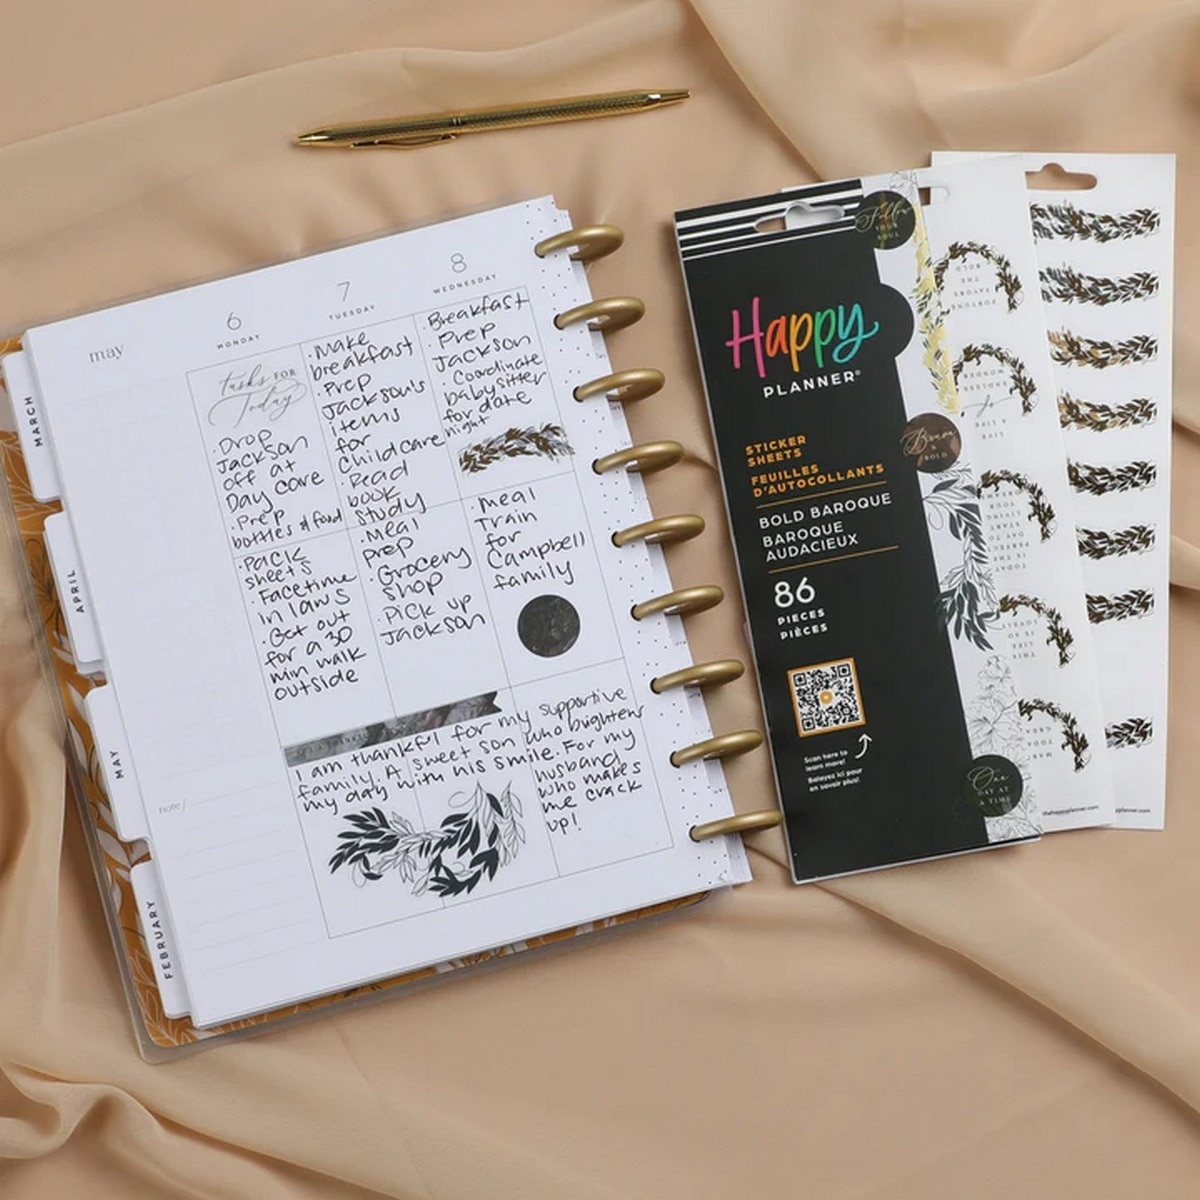 may
6
MONDAY
7
TUESDAY
8
WEDNESDAY
tasks FOR
Today
·Drop
Jackson
off at
Day care
·Prep
bottles & food
·Make
breakfast
·Prep
Jackson's
items
for
Childcare
·Read
book
study
·Breakfast
Prep
Jackson
·Coordinate
babysitter
for date
night
·Pack
sheets
·Facetime
in laws
·Get out
for a 30
min walk
outside
·Meal
prep
·Grocery
shop
·Pick up
Jackson
·Meal
Train
for
Campbell
family
I am thankful for my supportive
family. A sweet son who brightens
my day with his smile. For my
husband
who makes
me crack
up!
note/
MARCH
APRIL
MAY
FEBRUARY
Happy
PLANNER®
STICKER
SHEETS
FEUILLES
D'AUTOCOLLANTS
BOLD BAROQUE
BAROQUE
AUDACIEUX
86
PIECES
PIÈCES
Scan here to
learn more!
Balayez ici pour
en savoir plus!
Follow
YOUR
SOUL
Brave
BOLD
One
DAY AT
A TIME
FORTUNE
FAVORS
THE
BOLD
LIVE
A LIFE
of
ENDLESS
WONDER
TODAY
IS THE
PERFECT
DAY TO
START
LIVING
YOUR
THIS
LIFE IS
SO
LOVELY
TODAY
thehappyplanner.com